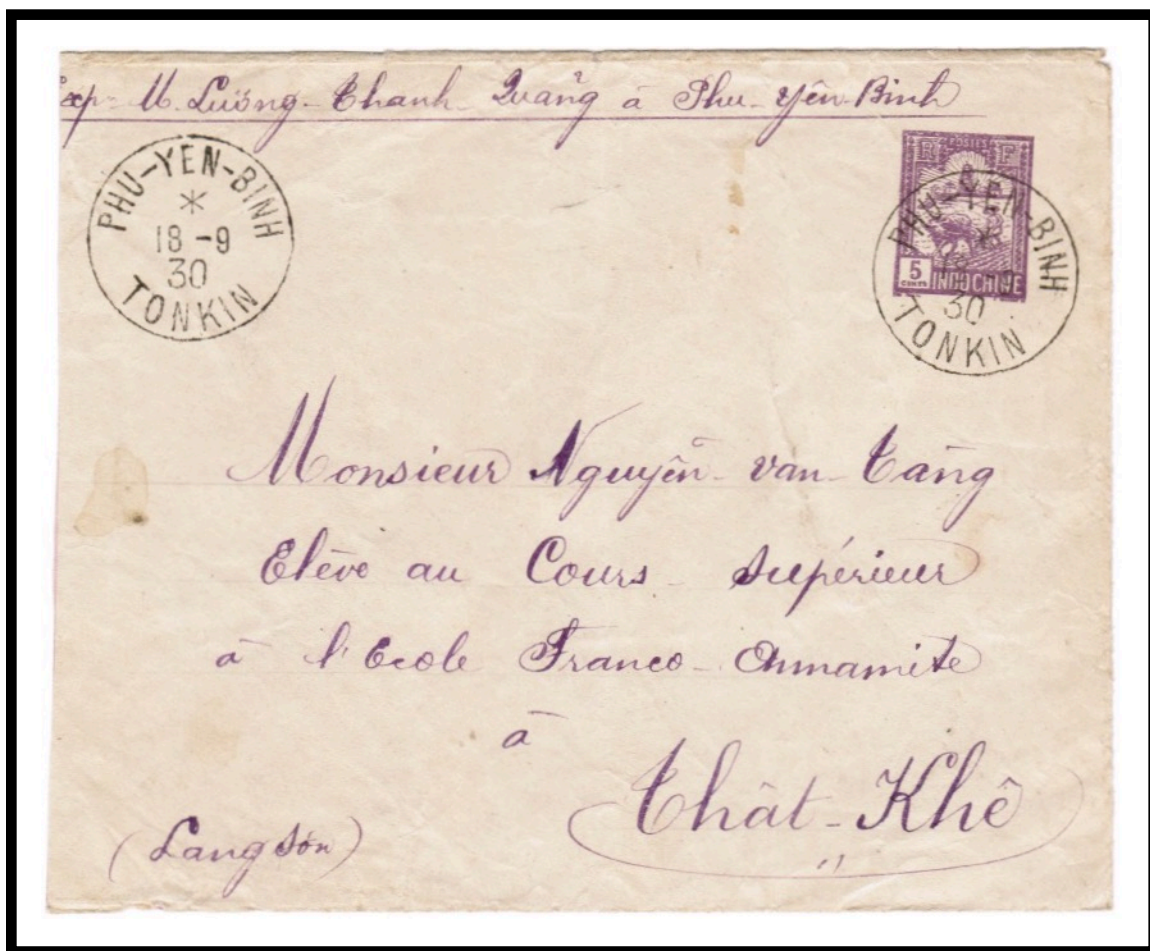 Exp. M. Lương-Thanh-Quảng à Phu-Yên-Binh
PHU-YEN-BINH
*
18-9
30
TONKIN
POSTES
R F
5
CENTS
INDOCHINE
PHU-YEN-BINH
*
30
TONKIN
Monsieur Nguyễn-van-Tảng
Elève au Cours supérieur
à l'Ecole Franco-Annamite
à
Thât-Khê
(Langsón)